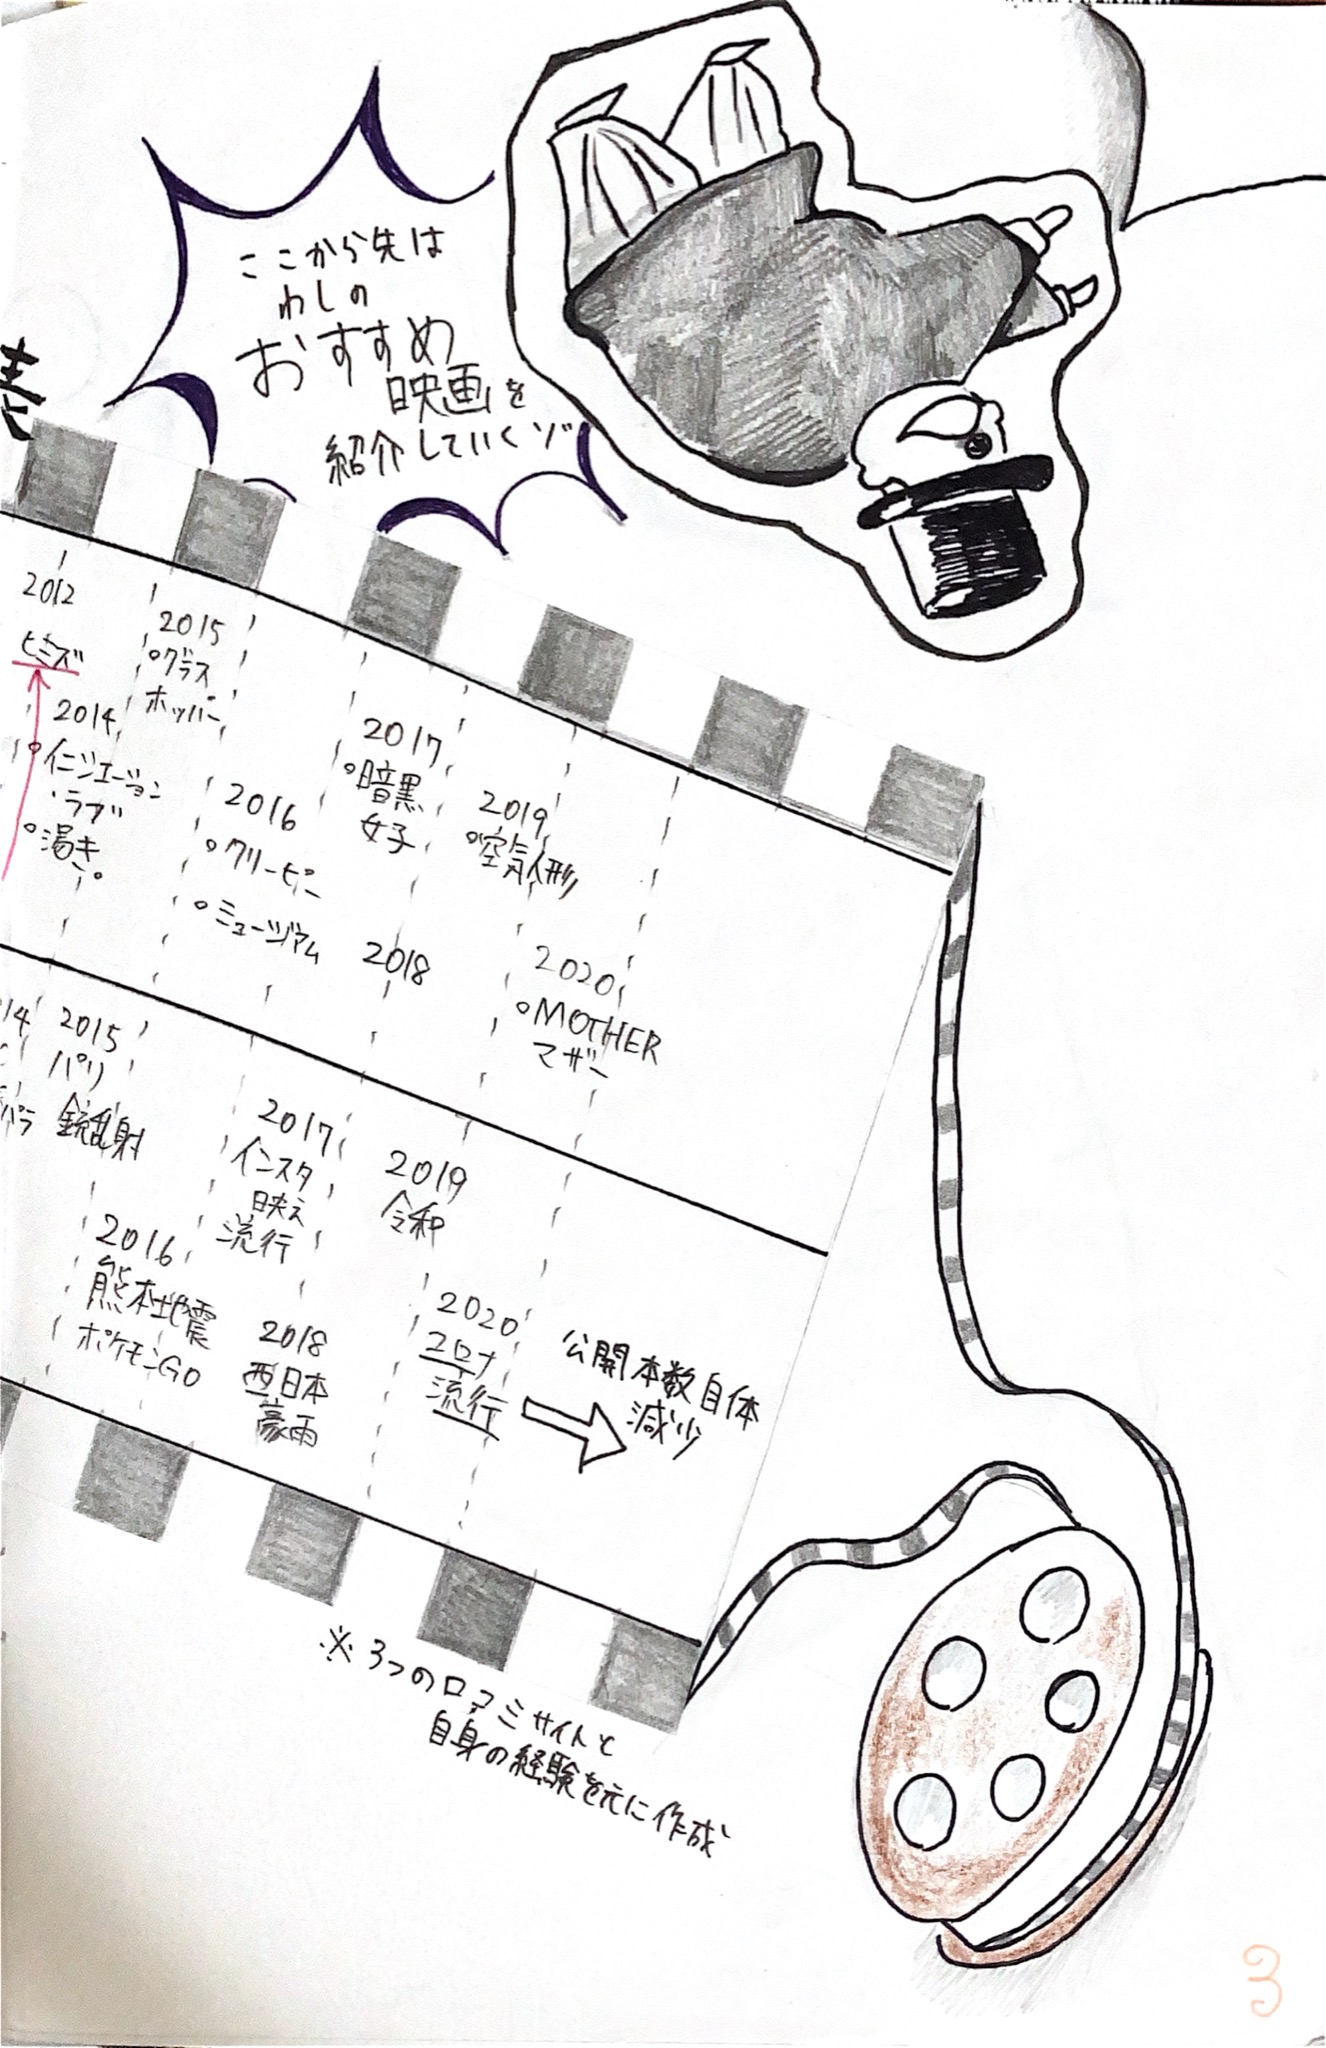 ここから先は
わしの
おすすめ
映画を
紹介していくゾ
表
2012
ヒミズ
2014
イニシエーション
ラブ
渇き。
2015
グラス
ホッパー
2016
クリーピー
ミュージアム
2017
暗黒
女子
2018
2019
空気人形
2020
MOTHER
マザー
14
2015
パリ
銃乱射
2016
熊本地震
ポケモンGO
2017
インスタ
映え
流行
2018
西日本
豪雨
2019
令和
2020
コロナ
流行
公開本数自体
減少
※3つの口コミサイトと
自身の経験を元に作成
3